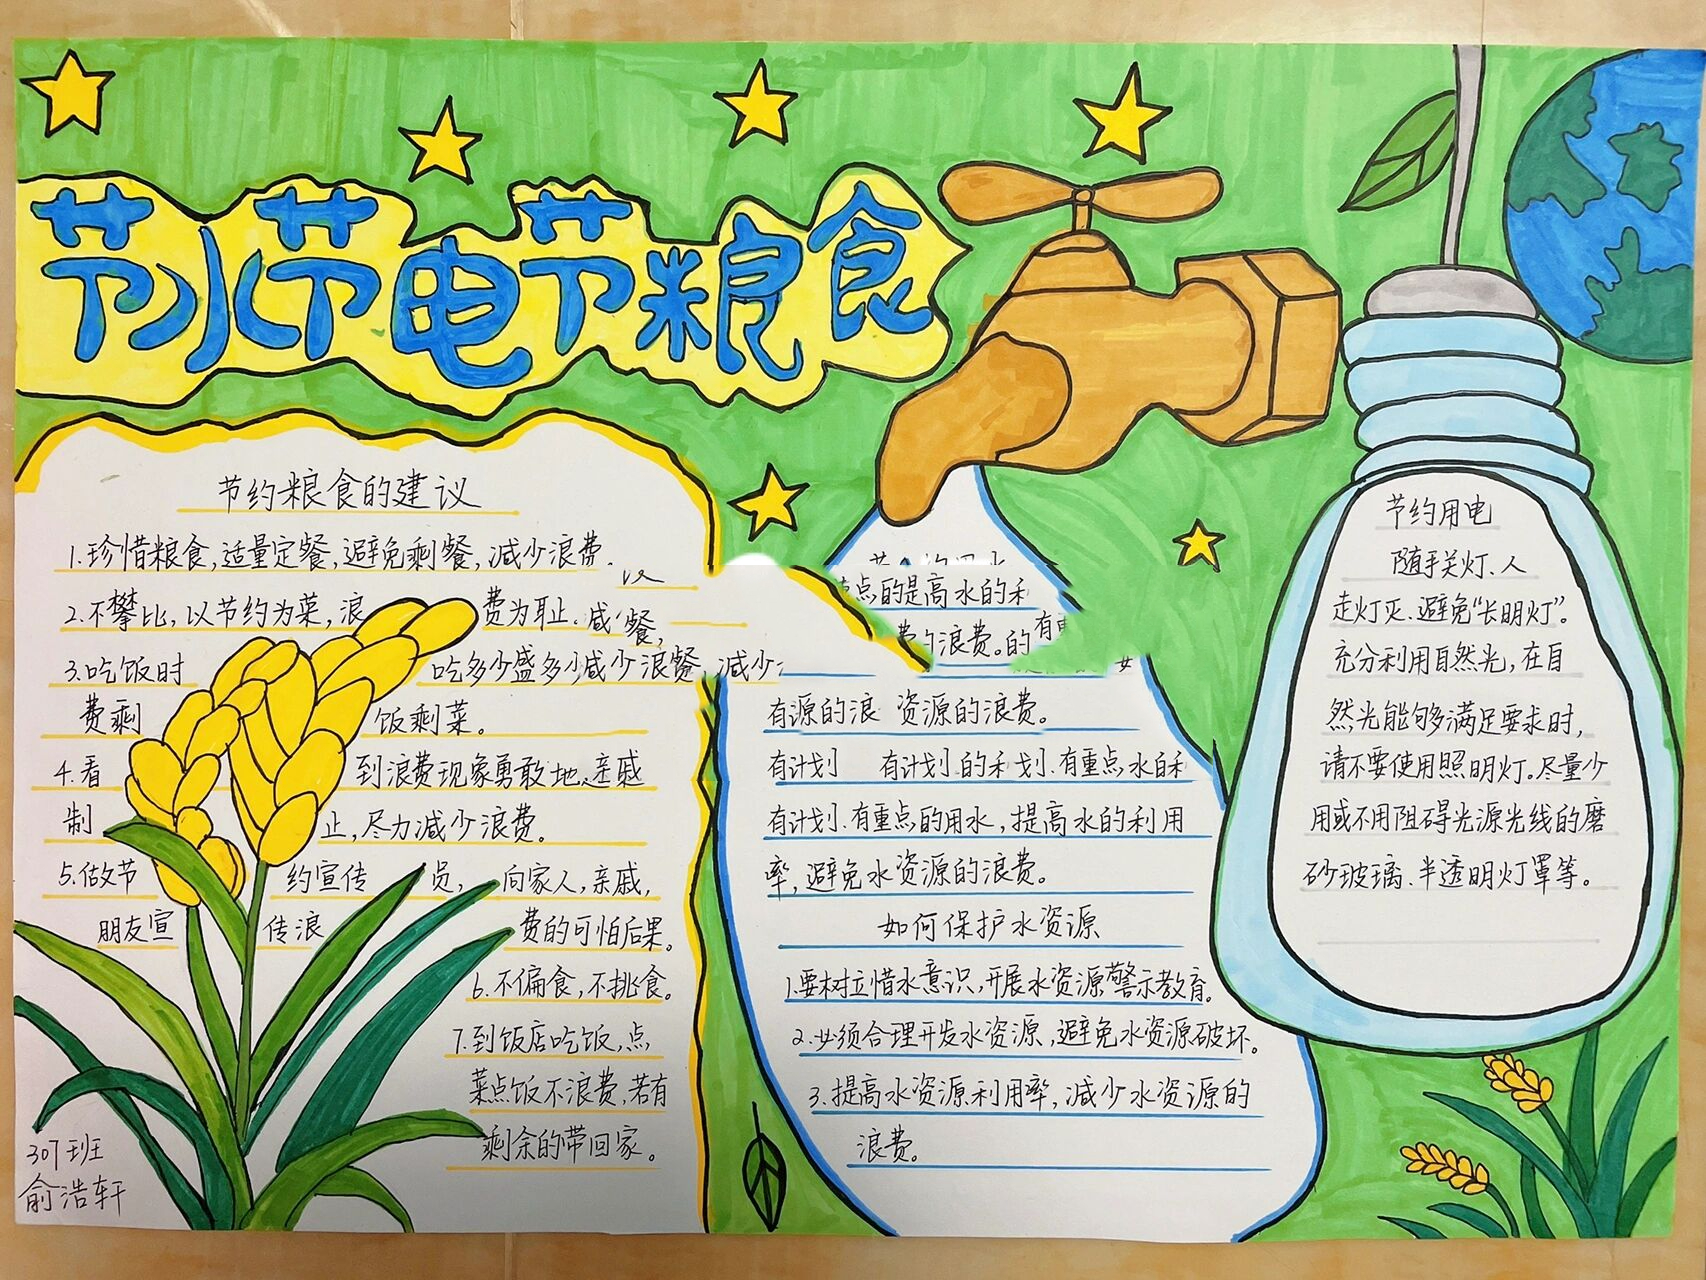 节水节电节粮食
节约粮食的建议
1.珍惜粮食,适量定餐,避免剩餐,减少浪费。
2.不攀比,以节约为菜,浪 费为耻.
餐,
3.吃饭时 吃多少盛多 减少浪餐,减少
费剩 饭剩菜。
4.看 到浪费现象勇敢地、亲戚
制 止,尽力减少浪费。
5.做节 约宣传 员, 向家人,亲戚,
朋友宣 传浪 费的可怕后果。
6.不偏食,不挑食。
7.到饭店吃饭,点
菜点饭不浪费,若有
剩余的带回家。
307班
俞浩轩
点的是高水的利
费的浪费。的有
有源的浪 资源的浪费。
有计划 有计划.的利划.有重点水的利
有计划.有重点的用水,提高水的利用
率,避免水资源的浪费。
如何保护水资源
1.要树立惜水意识,开展水资源警示教育。
2.必须合理开发水资源,避免水资源破坏。
3.提高水资源利用率,减少水资源的
浪费。
节约用电
随手关灯、人
走灯灭、避免“长明灯”。
充分利用自然光,在自
然光能够满足要求时,
请不要使用照明灯。尽量少
用或不用阻碍光源光线的磨
砂玻璃、半透明灯罩等。